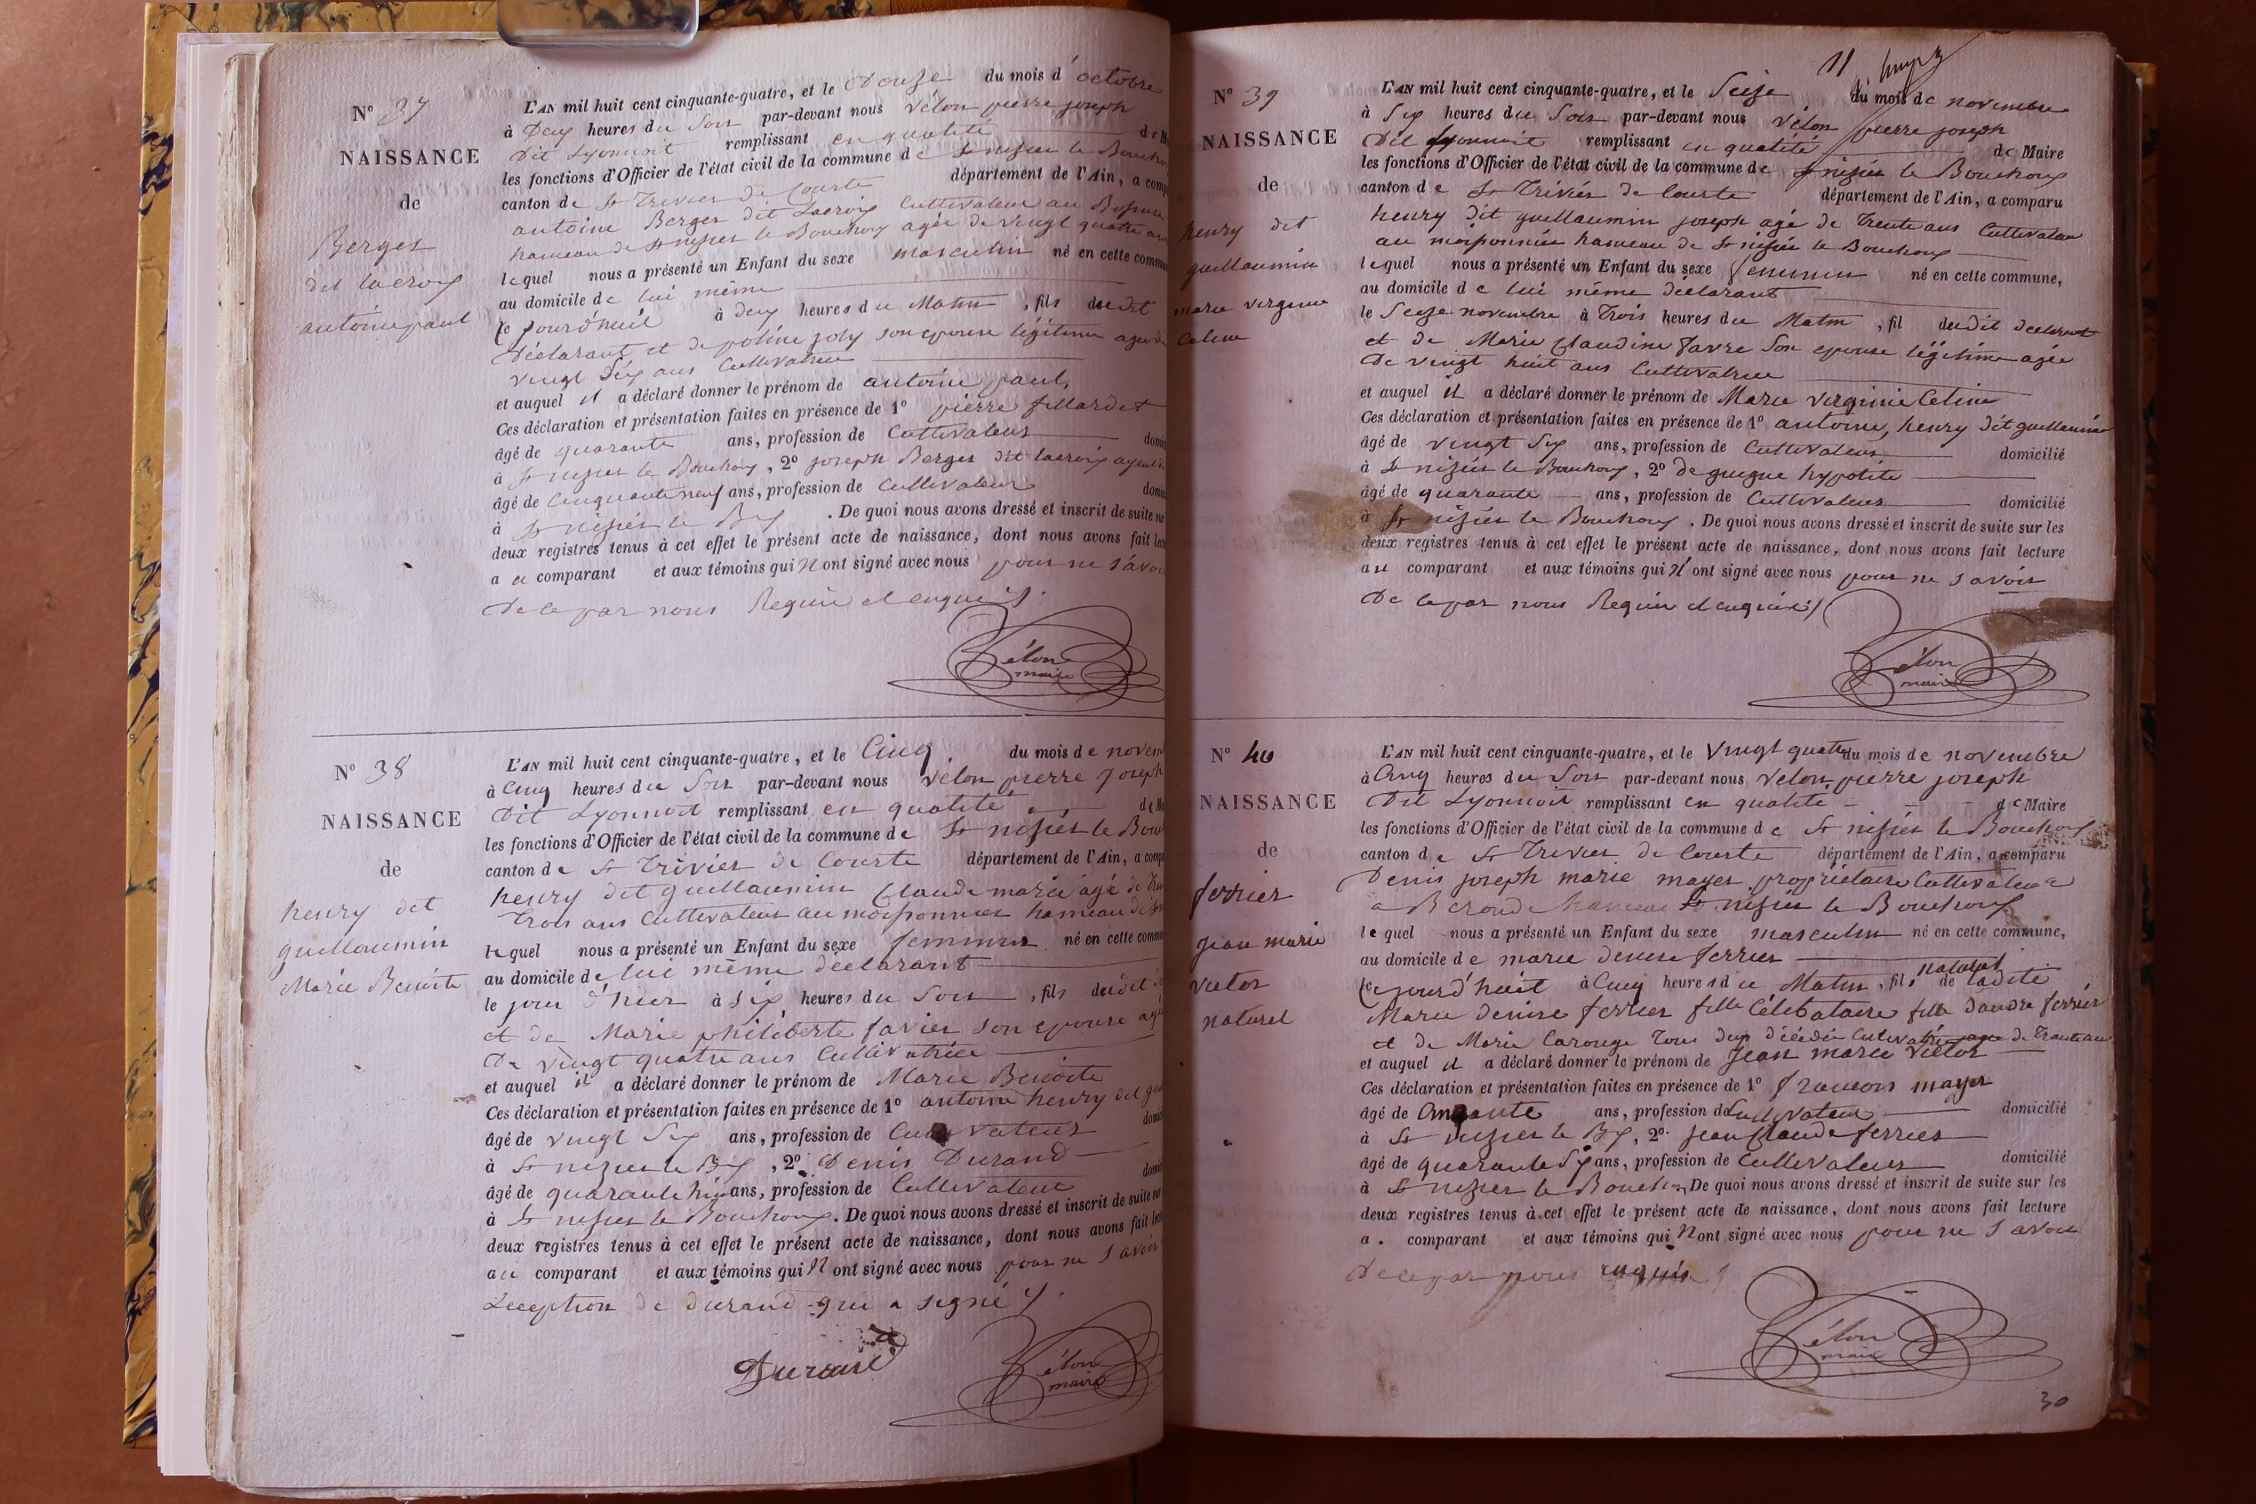 N° 37
NAISSANCE
de
Berger
dit lacroix
antoine paul
L'AN mil huit cent cinquante-quatre, et le Douze du mois d'octobre
à Deux heures du Soir par-devant nous Vélon pierre joseph
Dit Lyonnoit remplissant en qualité de M
les fonctions d'Officier de l'état civil de la commune de St nizier le Bouchou
canton de St Trivier de Courte département de l'Ain, a comp
antoine Berger dit Lacroix Cultivateur au
hameau de St nizier le Bouchoux agée de vingt quatre ans
lequel nous a présenté un Enfant du sexe masculin né en cette commu
au domicile de lui même
ce jourd'huit à deux heures du Matin, fils dudit
Déclarant et de poline joly son epouse légitime agée de
vingt Six ans Cultivatrice
et auquel il a déclaré donner le prénom de antoine paul,
Ces déclaration et présentation faites en présence de 1° pierre fillardet
âgé de quarante ans, profession de Cultivateur domi
à St nizier le Bouchoux, 2° joseph Berger dit lacroix
âgé de Cinquante neuf ans, profession de Cultivateur domi
à St nizier le Bx. De quoi nous avons dressé et inscrit de suite su
deux registres tenus à cet effet le présent acte de naissance, dont nous avons fait lec
a u comparant et aux témoins qui N'ont signé avec nous pour ne savoi
De ce par nous Requie et enquis
Vélon
maire
N° 38
NAISSANCE
de
henry dit
guillaumin
Marie Benoite
L'AN mil huit cent cinquante-quatre, et le Cinq du mois de novem
à Cinq heures du Soir par-devant nous Vélon pierre joseph
Dit Lyonnoit remplissant en qualité de M
les fonctions d'Officier de l'état civil de la commune de St nizier le Bou
canton de St Trivier de Courte département de l'Ain, a comp
henry dit guillaumin Claude marie agé de
Trois ans Cultivateur au moisponnier hameau de St
lequel nous a présenté un Enfant du sexe feminin né en cette commu
au domicile de lui même déclarant
le jour d'hier à Six heures du Soir, fils dudit
et de Marie philiberte favier son epouse agé
De vingt quatre ans Cultivatrice
et auquel il a déclaré donner le prénom de Marie Benoite
Ces déclaration et présentation faites en présence de 1° antoine henry dit
âgé de vingt Six ans, profession de Cultivateur domi
à St nizier le Bx, 2° Denis Durand
âgé de quarante ans, profession de Cultivateur domi
à St nizier le Bouchoux. De quoi nous avons dressé et inscrit de suite su
deux registres tenus à cet effet le présent acte de naissance, dont nous avons fait lec
au comparant et aux témoins qui N'ont signé avec nous pour ne Savoir
L'eception de durand qui a signé
Durand
Vélon
maire
11
N° 39
NAISSANCE
de
henry dit
guillaumin
marie virginie
Celine
L'AN mil huit cent cinquante-quatre, et le Seize du mois de novembre
à Six heures du Soir par-devant nous Vélon pierre joseph
Dit Lyonnoit remplissant en qualité de Maire
les fonctions d'Officier de l'état civil de la commune de St nizier le Bouchoux
canton de St Trivier de Courte département de l'Ain, a comparu
henry dit guillaumin joseph agé de Trente ans Cultivateur
au moisponnier hameau de St nizier le Bouchoux
lequel nous a présenté un Enfant du sexe feminin né en cette commune,
au domicile de lui même déclarant
le Seize novembre à Trois heures du Matin, fil dudit declarant
et de Marie Claudine favre Son epouse légitime agée
De vingt huit ans Cultivatrice
et auquel il a déclaré donner le prénom de Marie virginie Celine
Ces déclaration et présentation faites en présence de 1° antoine, henry Dit guillaumin
âgé de vingt Six ans, profession de Cultivateur domicilié
à St nizier le Bouchoux, 2° De guigue hypolite
âgé de quarante ans, profession de Cultivateur domicilié
à St nizier le Bouchoux. De quoi nous avons dressé et inscrit de suite sur les
deux registres tenus à cet effet le présent acte de naissance, dont nous avons fait lecture
au comparant et aux témoins qui N'ont signé avec nous pour ne Savoir
De ce par nous Requie et enquis
Vélon
maire
N° 40
NAISSANCE
de
ferrier
jean marie
victor
naturel
L'AN mil huit cent cinquante-quatre, et le Vingt quatre du mois de novembre
à Cinq heures du Soir par-devant nous Velon pierre joseph
Dit Lyonnoit remplissant en qualité de Maire
les fonctions d'Officier de l'état civil de la commune de St nizier le Bouchoux
canton de St Trivier de Courte département de l'Ain, a comparu
Denis joseph marie mayer propriétaire Cultivateur
a hameau St nizier le Bouchoux
lequel nous a présenté un Enfant du sexe masculin né en cette commune,
au domicile de marie denise ferrier
Ce jourd'huit à Cinq heures du Matin, fils naturel de ladite
Marie denise ferrier fille Célibataire fille dandre ferrier
et de Marie Carouge Tous deux décédée Cultivatrice agee de Trente ans
et auquel il a déclaré donner le prénom de Jean marie Victor
Ces déclaration et présentation faites en présence de 1° francois mayer
âgé de ans, profession de Cultivateur domicilié
à St nizier le Bx, 2° jean Claude ferrier
âgé de quarante Six ans, profession de Cultivateur domicilié
à St nizier le Bouchou De quoi nous avons dressé et inscrit de suite sur les
deux registres tenus à cet effet le présent acte de naissance, dont nous avons fait lecture
a. comparant et aux témoins qui N'ont signé avec nous pour ne Savoir
De ce par nous enquis
Vélon
maire
30